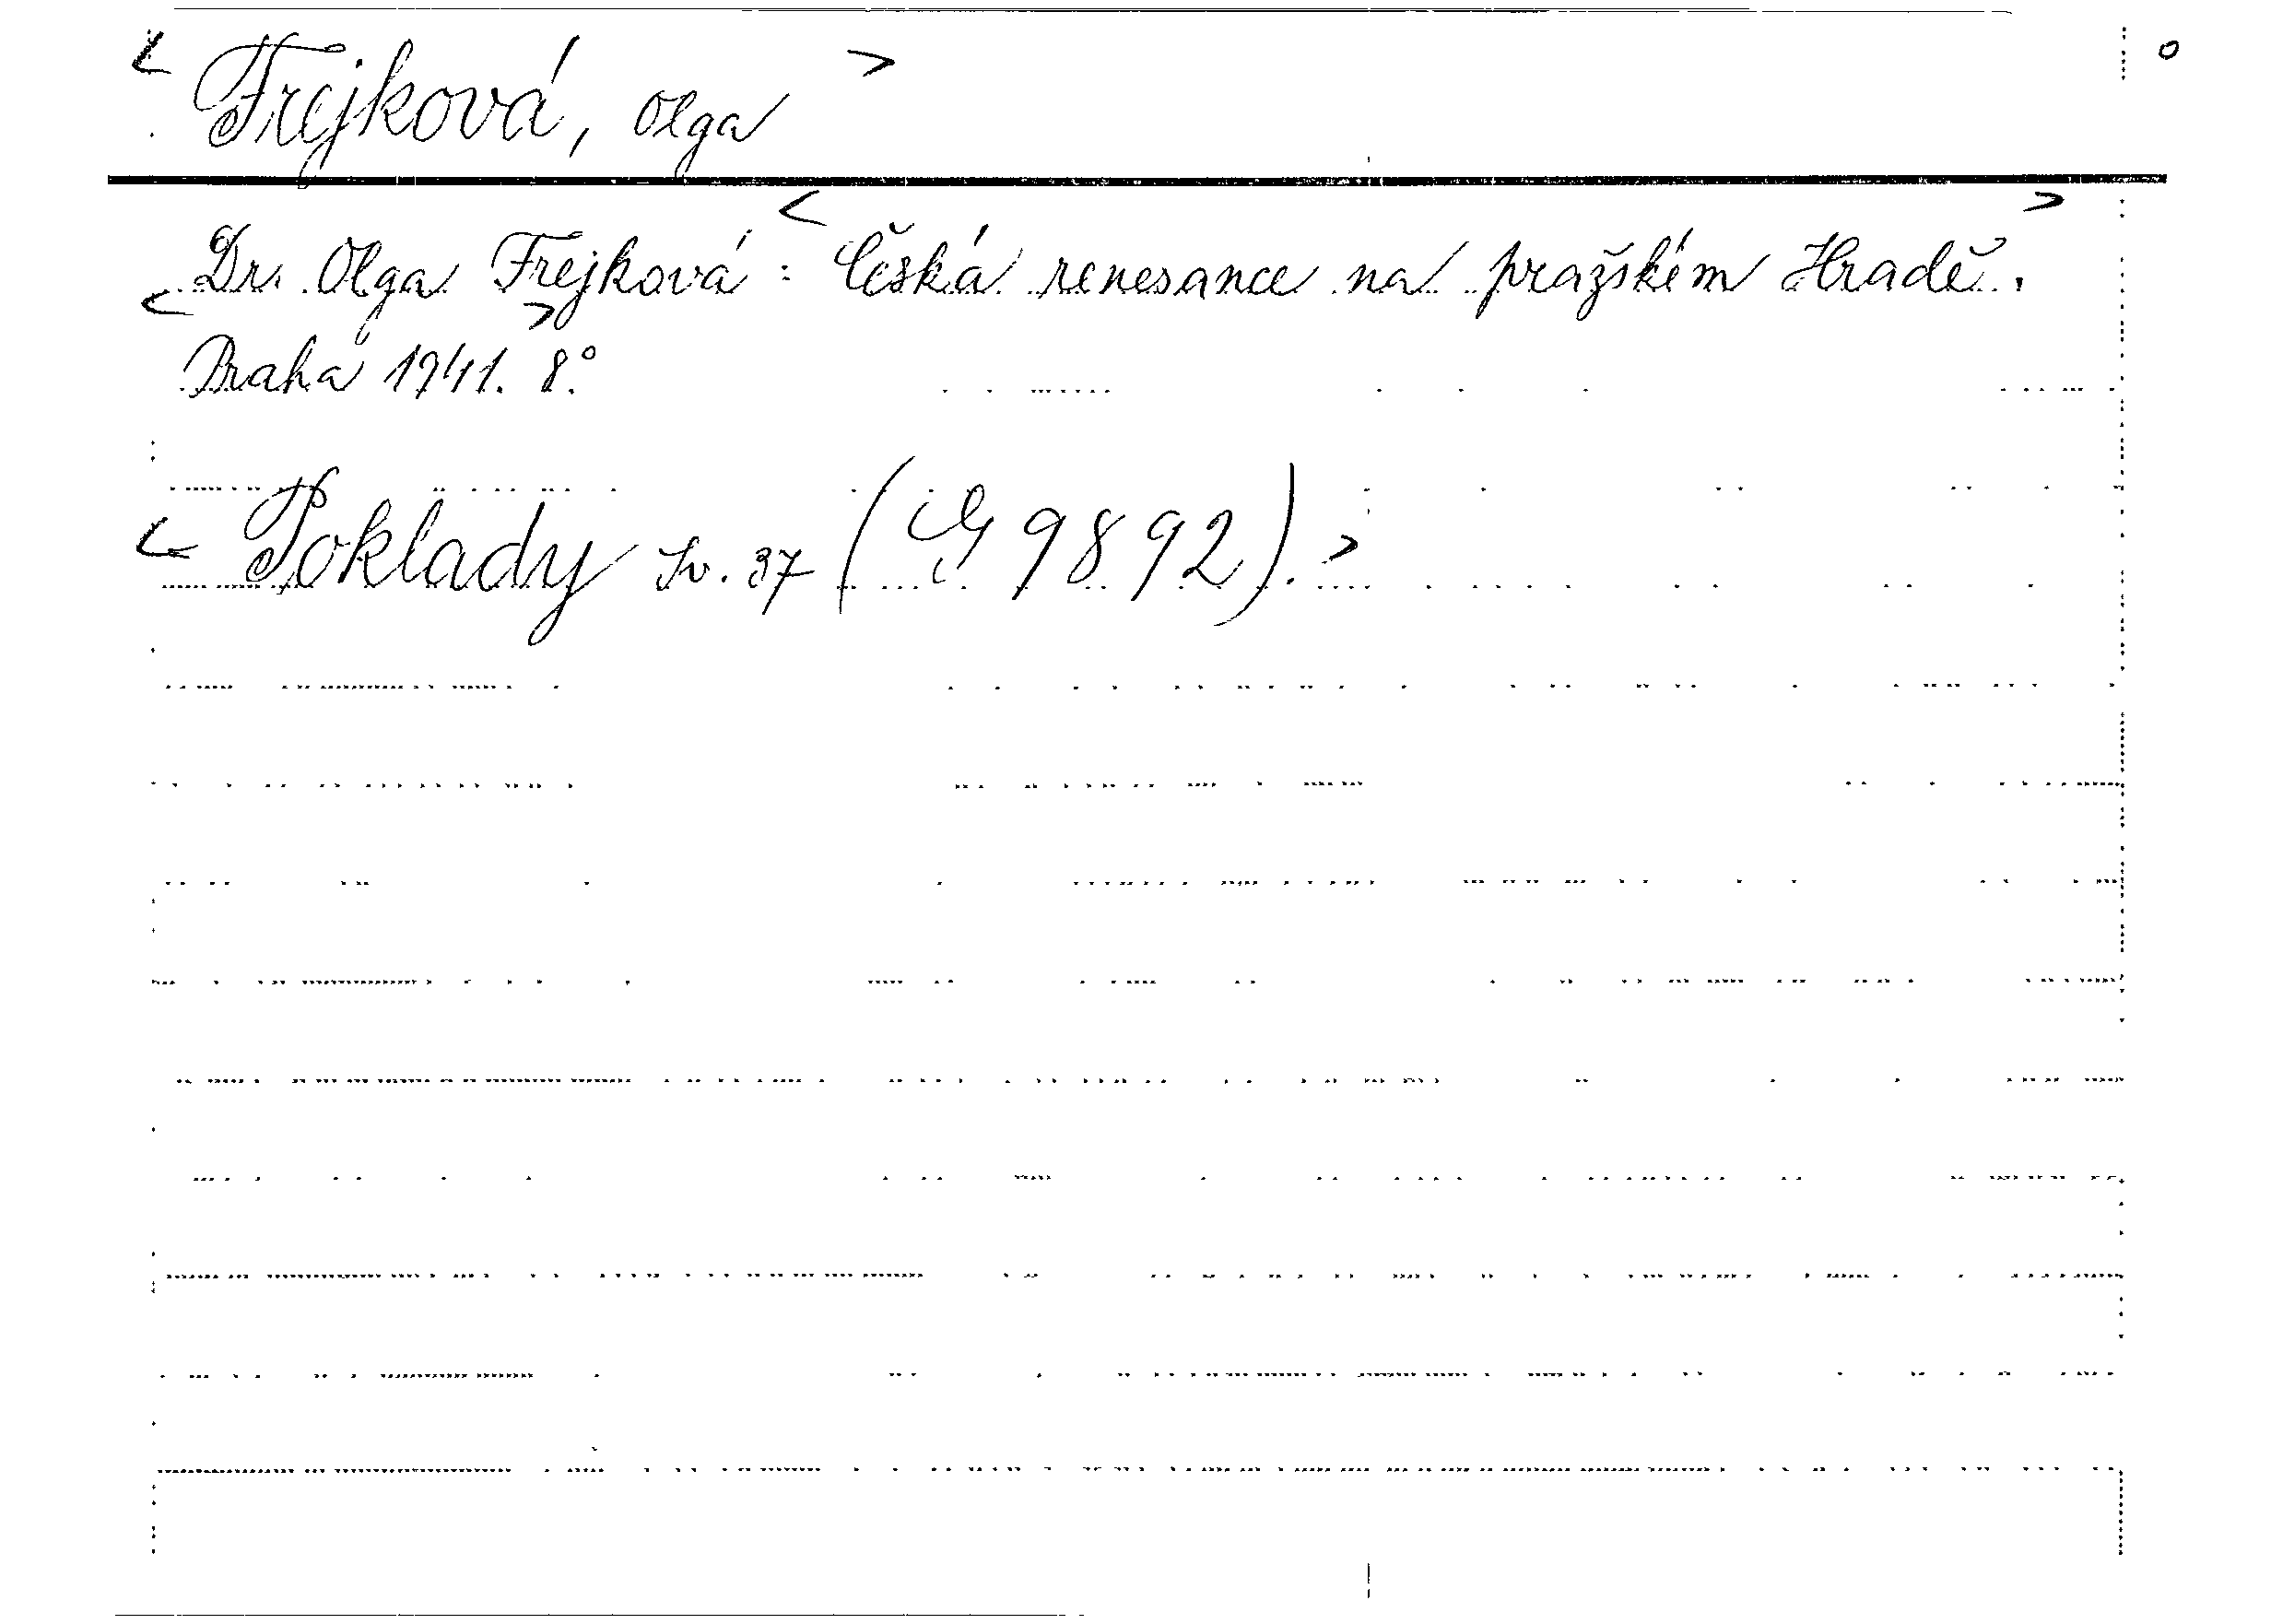 < Frejková, Olga > o
< Dr. Olga Frejková > : < Česká renesance na pražském Hradě. >
Praha 1941. 8°.
< Poklady Sv. 37 (G 9892). >